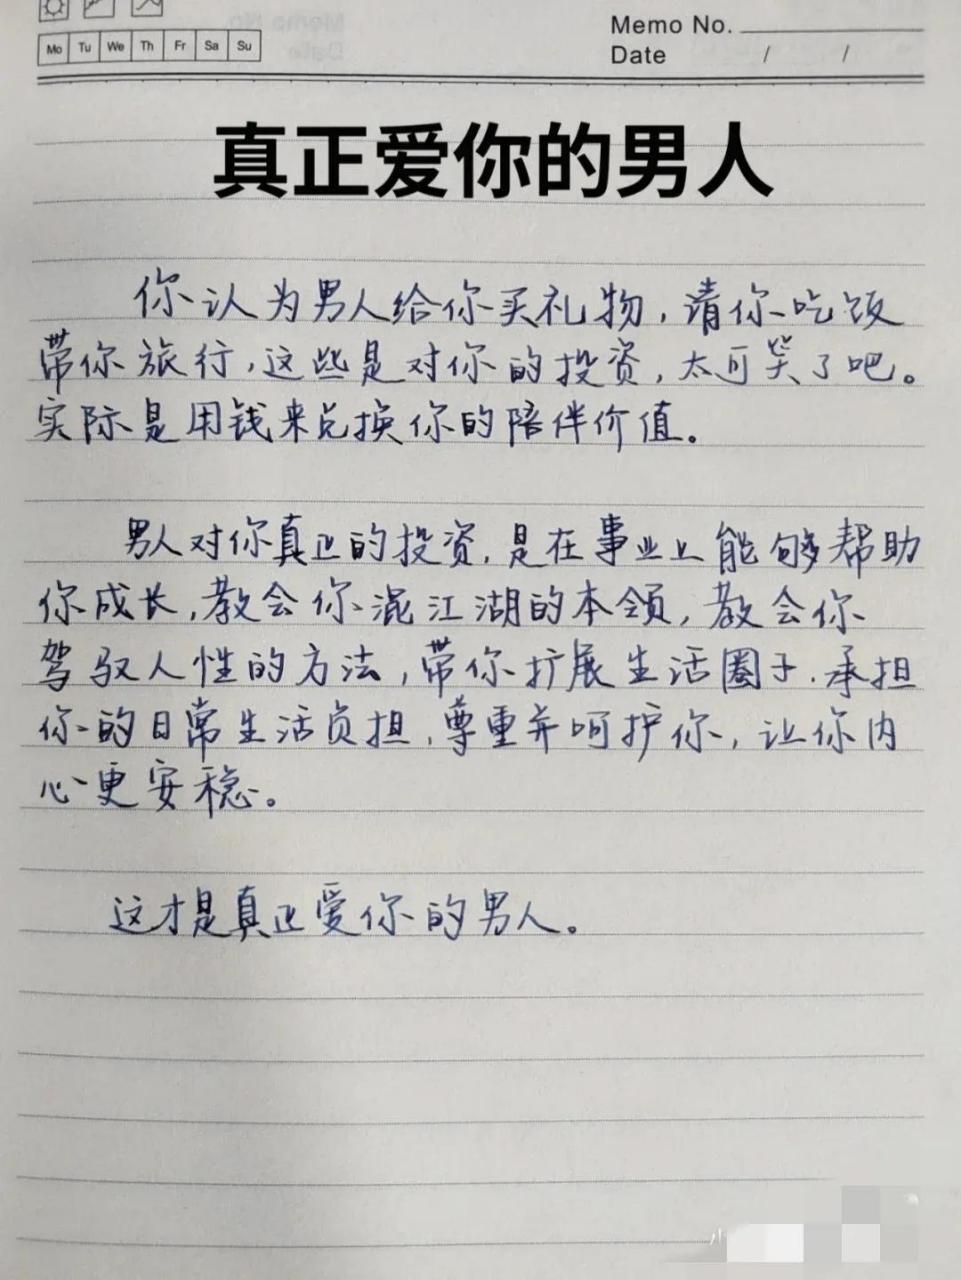 Mo Tu We Th Fr Sa Su
Memo No.
Date / /
真正爱你的男人
你认为男人给你买礼物，请你吃饭
带你旅行，这些是对你的投资，太可笑了吧。
实际是用钱来兑换你的陪伴价值。
男人对你真正的投资，是在事业上能够帮助
你成长，教会你混江湖的本领，教会你
驾驭人性的方法，带你扩展生活圈子，承担
你的日常生活负担，尊重并呵护你，让你内
心更安稳。
这才是真正爱你的男人。